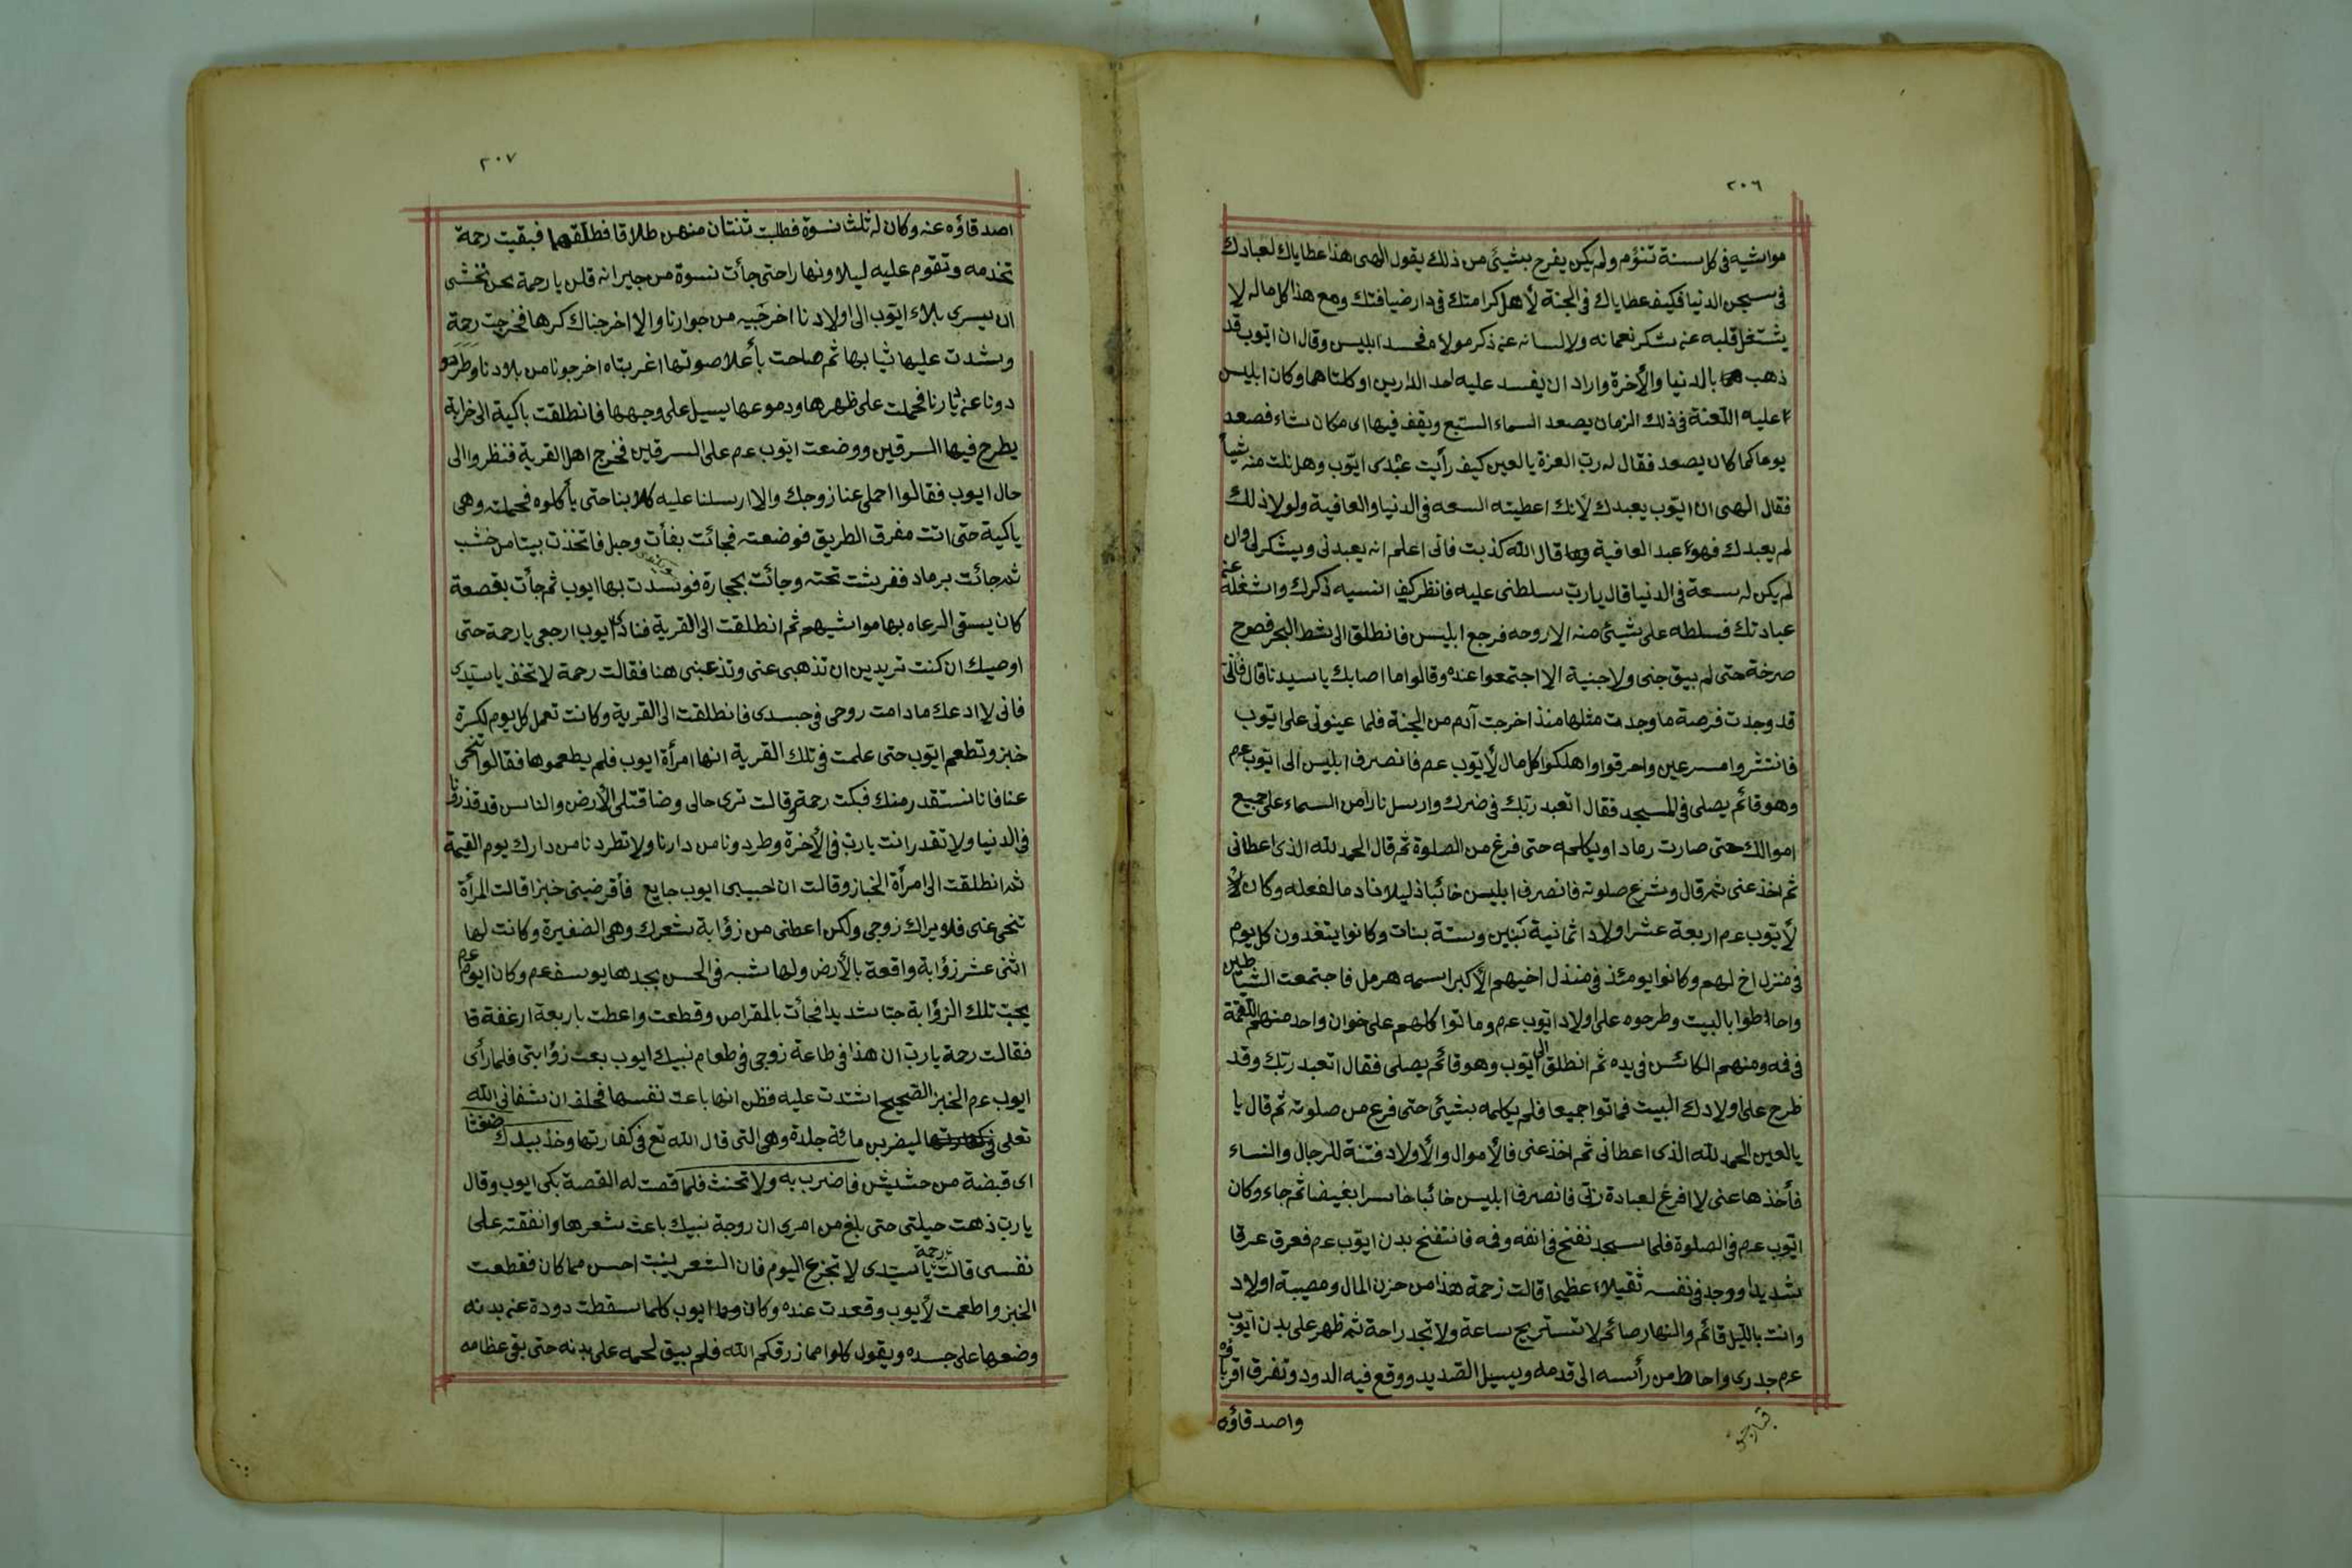 ٢٠٦
مواشيه في كل سنة تتؤم ولم يكن يفرح بشيئ من ذلك يقول الهى هذا عطاياك لعبادك
في سجن الدنيا فكيف عطاياك في الجنة لأهل كرامتك في دار ضيافتك ومع هذا كل ماله لا
يشتغل قلبه عن شكر نعمائه ولا لسانه عن ذكر مولاه فحسد ابليس وقال ان ايوب قد
ذهب بالدنيا والأخرة واراد ان يفسد عليه احد الدارين او كلتاهما وكان ابليس
عليه اللعنة في ذلك الزمان يصعد السماء السبع ويقف فيها اى مكان شاء فصعد
يوما كما كان يصعد فقال له رب العزة يا لعين كيف رأيت عبدى ايوب وهل نلت منه شيأ
فقال الهى ان ايوب يعبدك لأنك اعطيته السعه في الدنيا والعافية ولولا ذلك
لم يعبدك فهو عبد العافية قال الله كذبت فانى اعلم انه يعبدنى ويشكر لى وان
لم يكن له سعة في الدنيا قال يا رب سلطنى عليه فانظر كيف انسيه ذكرك واشغله عن
عبادتك فسلطه على شيئ منه الا روحه فرجع ابليس فانطلق الى شط البحر فصرخ
صرخة حتى لم يبق جنى ولا جنية الا اجتمعوا عنده وقالوا ما اصابك يا سيدنا قال فانى
قد وجدت فرصة ما وجدت مثلها منذ اخرجت آدم من الجنة فلما عينونى على ايوب
فانتشروا مسرعين واحرقوا واهلكوا كل مال لأيوب عم فانصرف ابليس الى ايوب عم
وهو قائم يصلى في المسجد فقال اتعبد ربك في ضرك وارسل نارا من السماء على جميع
اموالك حتى صارت رمادا ويكلمه حتى فرغ من الصلوة ثم قال الحمد لله الذى اعطانى
ثم اخذ عنى ثم قال وشرع صلوته فانصرف ابليس خائبا ذليلا نادما لفعله وكان
لأيوب عم اربعة عشر اولاد ثمانية بنين وستة بنات وكانوا يتغدون كل يوم
في منزل اخ لهم وكانوا يومئذ في منذل اخيهم الأكبر اسمه هرمل فاجتمعت الشياطين
واحاطوا بالبيت وطرحوه على اولاد ايوب عم وماتوا كلهم على خوان واحد منهم اللقمة
في فه ومنهم الكائس في يده ثم انطلق الى ايوب وهو قائم يصلى فقال اتعبد ربك وقد
طرح على اولادك البيت فماتوا جميعا فلم يكلمه بشيئ حتى فرغ من صلوته ثم قال يا
يا لعين الحمد لله الذى اعطانى ثم اخذ عنى فالأموال والأولاد فتنة للرجال والنساء
فأخذها عنى لا افرغ لعبادة ربى فانصرف ابليس خائبا خاسرا بغيضا ثم جاء وكان
ايوب عم في الصلوة فلما سجد نفخ في انفه وفمه فانتفخ بدن ايوب عم فعرق عرقا
شديدا ووجد في نفسه ثقيلاء عظيما قالت رحمة هذا من حزن المال ومصيبة اولاد
وانت بالليل قائم والنهار صائم لا تستريح ساعة ولا تجد راحة ثم ظهر على بدن ايوب
عم جدرى واحاط من رأسه الى قدمه ويسيل الصديد ووقع فيه الدود وتفرق اقرباؤه
واصدقاؤه
٢٠٧
اصدقاؤه عنه وكان له ثلث نسوة فطلبت ثنتان منهن طلاقا فطلقهما فبقيت رحمة
تخدمه وتقوم عليه ليلا ونهارا حتى جأت نسوة من جيرانه قلن يا رحمة نحن نخشى
ان يسرى بلاء ايوب الى اولادنا اخرجيه من جوارنا والا اخرجناك كرها فخرجت رحمة
وشدت عليها ثيابها ثم صاحت بأعلا صوتها اغربتاه اخرجونا من بلادنا وطردو
دونا عن ديارنا فحملت على ظهرها ودموعها يسيل على وجهها فانطلقت باكية الى خرابة
يطرح فيها السرقين ووضعت ايوب عم على السرقين فخرج اهل القرية فنظروا الى
حال ايوب فقالوا احملى عنا زوجك والا ارسلنا عليه كلابنا حتى يأكلوه فحملته وهى
باكية حتى اتت مفرق الطريق فوضعته فجائت بفأت وحبل فاتخذت بيتا من خشب
ثم جائت برماد ففرشت تحته وجائت بحجارة فوسدت بها ايوب ثم جأت بقصعة
كان يسقى الرعاه بها مواشيهم ثم انطلقت الى القرية فنادى ايوب ارجعى يا رحمة حتى
اوصيك ان كنت تريدين ان تذهبى عنى وتدعينى هنا فقالت رحمة لا تخف يا سيدى
فانى لا ادعك ما دامت روحى في جسدى فانطلقت الى القرية وكانت تعمل كل يوم لكسرة
خبز وتطعم ايوب حتى علمت في تلك القرية انها امرأة ايوب فلم يطعموها فقالوا تنحى
عنا فانا نستقذر منك فبكت رحمة وقالت ترى حالى وضاقت لى الأرض والناس قد قذرونا
في الدنيا ولا تقذر انت يا رب في الأخرة وطردونا من دارنا ولا تطردنا من دارك يوم القيمة
ثم انطلقت الى امرأة الخباز وقالت ان حبيبى ايوب جايع فأقرضينى خبزا قالت المرأة
تنحى عنى فلا يراك زوجى ولكن اعطنى من زؤابة شعرك وهى الضفيرة وكانت لها
اثنى عشر زؤابة واقعة بالأرض ولها شبه في الحسن بجدها يوسف عم وكان ايوب عم
يحب تلك الزؤابة حبا شديدا فجأت بالمقراص وقطعت واعطت باربعة ارغفة قا
فقالت رحمة يا رب ان هذا في طاعة زوجى في طعام نبيك ايوب بعت زؤابتى فلما رأى
ايوب عم الخبز الصحيح اشتدت عليه فظن انها باعت نفسها فحلف ان شفانى الله
تعلى ليضربن مائة جلدة وهى التى قال الله تع في كفارتها وخذ بيدك ضغثا
اى قبضة من حشيش فاضرب به ولا تحنث فلما قصت له القصة بكى ايوب وقال
يا رب ذهت حيلتى حتى بلغ من امرى ان زوجة نبيك باعت شعرها وانفقته على
نفسى قالت رحمة يا سيدى لا تجزع اليوم فان الشعر ينبت احسن مما كان فقطعت
الخبز واطعمت لأيوب وقعدت عنده وكان ايوب كلما سقطت دودة عن بدنه
وضعها على جسده ويقول كلوا مما رزقكم الله فلم يبق لحمه على بدنه حتى بقى عظامه